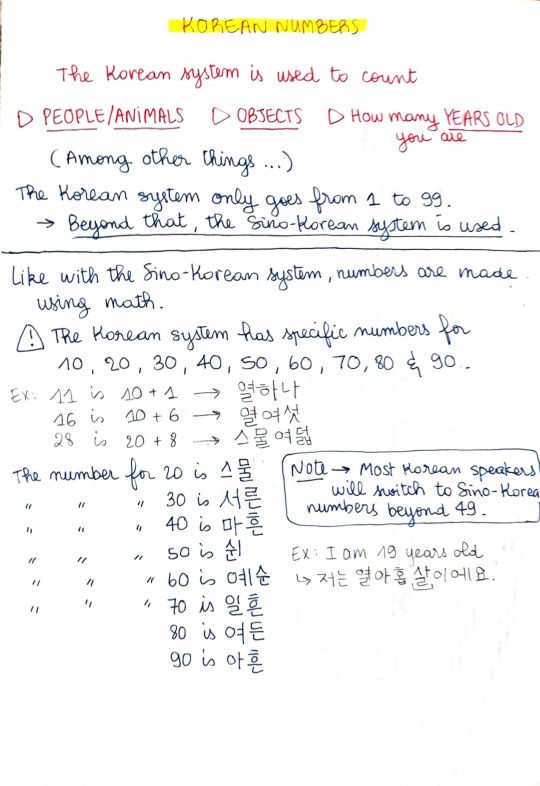 KOREAN NUMBERS
The Korean system is used to count
▷ PEOPLE/ANIMALS ▷ OBJECTS ▷ How many YEARS OLD
you are
(Among other things ...)
The Korean system only goes from 1 to 99.
→ Beyond that, the Sino-Korean system is used.
Like with the Sino-Korean system, numbers are made
using math.
⚠ The Korean system has specific numbers for
10, 20, 30, 40, 50, 60, 70, 80 & 90..
Ex: 11 is 10 + 1 → 열하나
16 is 10 + 6 → 열여섯
28 is 20 + 8 → 스물여덟
The number for 20 is 스물
" " " 30 is 서른
" " " 40 is 마흔
" " " 50 is 쉰
" " " 60 is 예순
" " " 70 is 일흔
80 is 여든
90 is 아흔
Note → Most Korean speakers
will switch to Sino-Korea
numbers beyond 49.
Ex: I am 19 years old
↳ 저는 열아홉 살이에요.